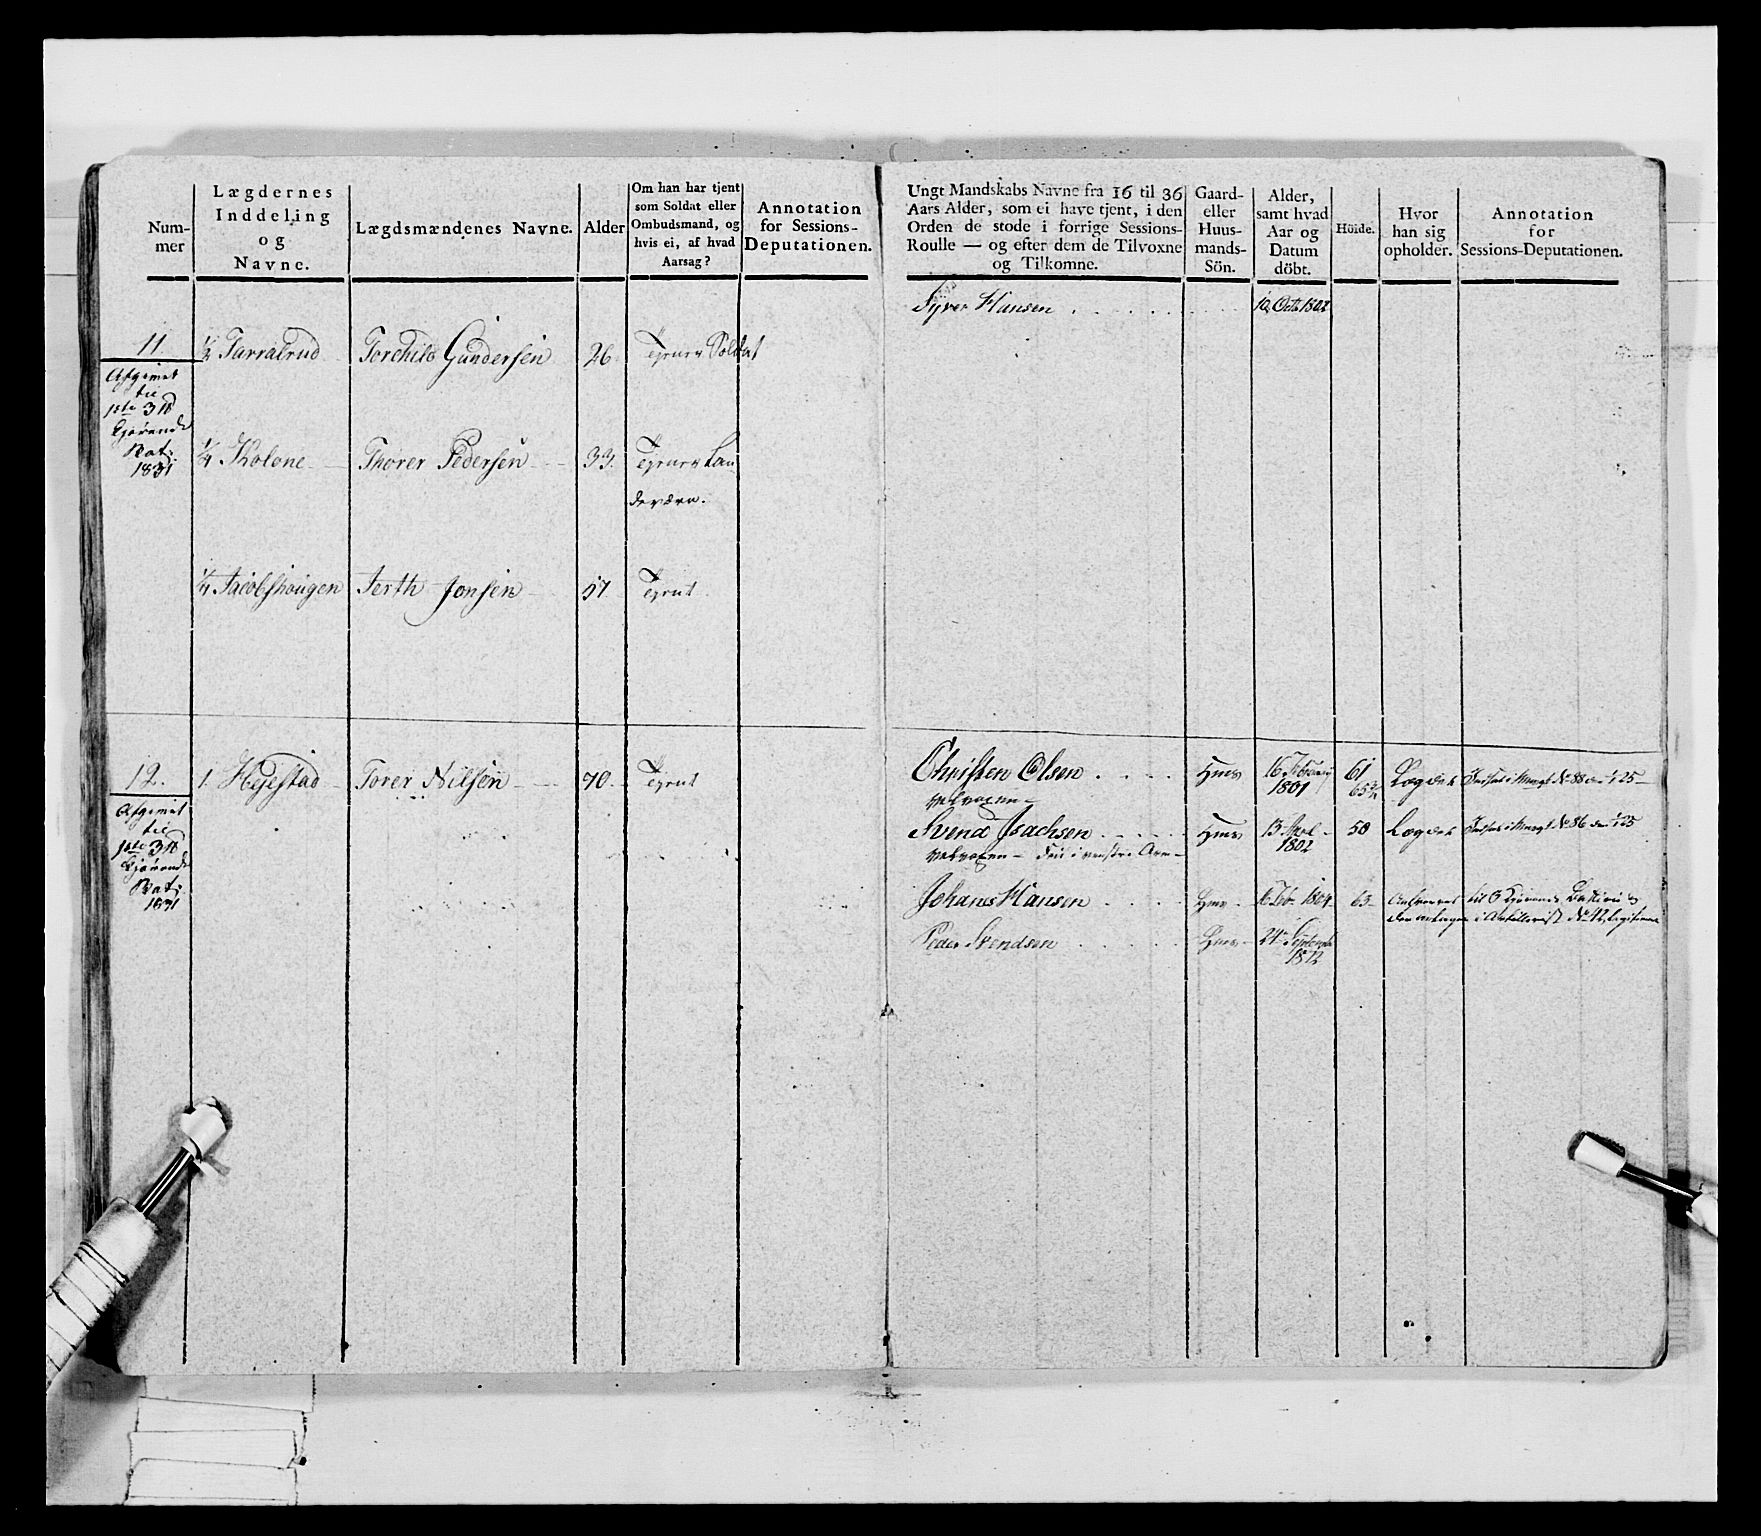 Num-
mer
Lægdernes
Inddeling
og
Navne.
Lægdsmændenes Navne.
Alder
Om han har tjent
som Soldat eller
Ombudsmand, og
hvis ei, af hvad
Aarsag?
Annotation
for Sessions-
Deputationen.
11
Afgivet
til
1ste 3 ℔
Kjørende
Bat:
1831
1/2 Tarralrud
Torchild Gundersen
26.
Tjener Soldat
1/4 Kolone
Thorer Pedersen
33.
Tjener Lan
deværn.
1/4 Jacobshougen
Jerth Jonsen
57
Tjent
12.
Afgivet
til
1ste 3 ℔
Kjørende
Bat:
1831
1. Hejestad
Torer Nilsøn
70.
Tjent
Ungt Mandskabs Navne fra 16 til 36
Aars Alder, som ei have tjent, i den
Orden de stode i forrige Sessions-
Roulle — og efter dem de Tilvoxne
og Tilkomne.
Gaard-
eller
Huus-
mands-
Sön.
Alder,
samt hvad
Aar og
Datum
döbt.
Höide.
Hvor
han sig
opholder.
Annotation
for
Sessions-Deputationen.
Syver Hansen
10 Octb 1802
Christen Olsen
Hms
16 Februarij
1801
61
65 3/4
Lægdet
velvoxen
Svend Isachsen
Hms
13 April
1802
58
Lægdet
velvoxen - Feil i venstre Arm
Johanes Hansen
Hms
6 Feb. 1804
63
til 6 Kjørende
Peder Svendsen
Hms
24 Septembr
1812